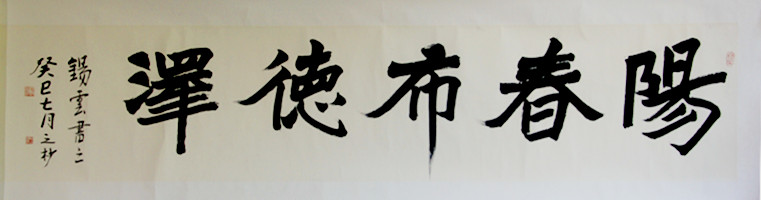 陽春布德澤
錫雲書之
癸巳七月之杪